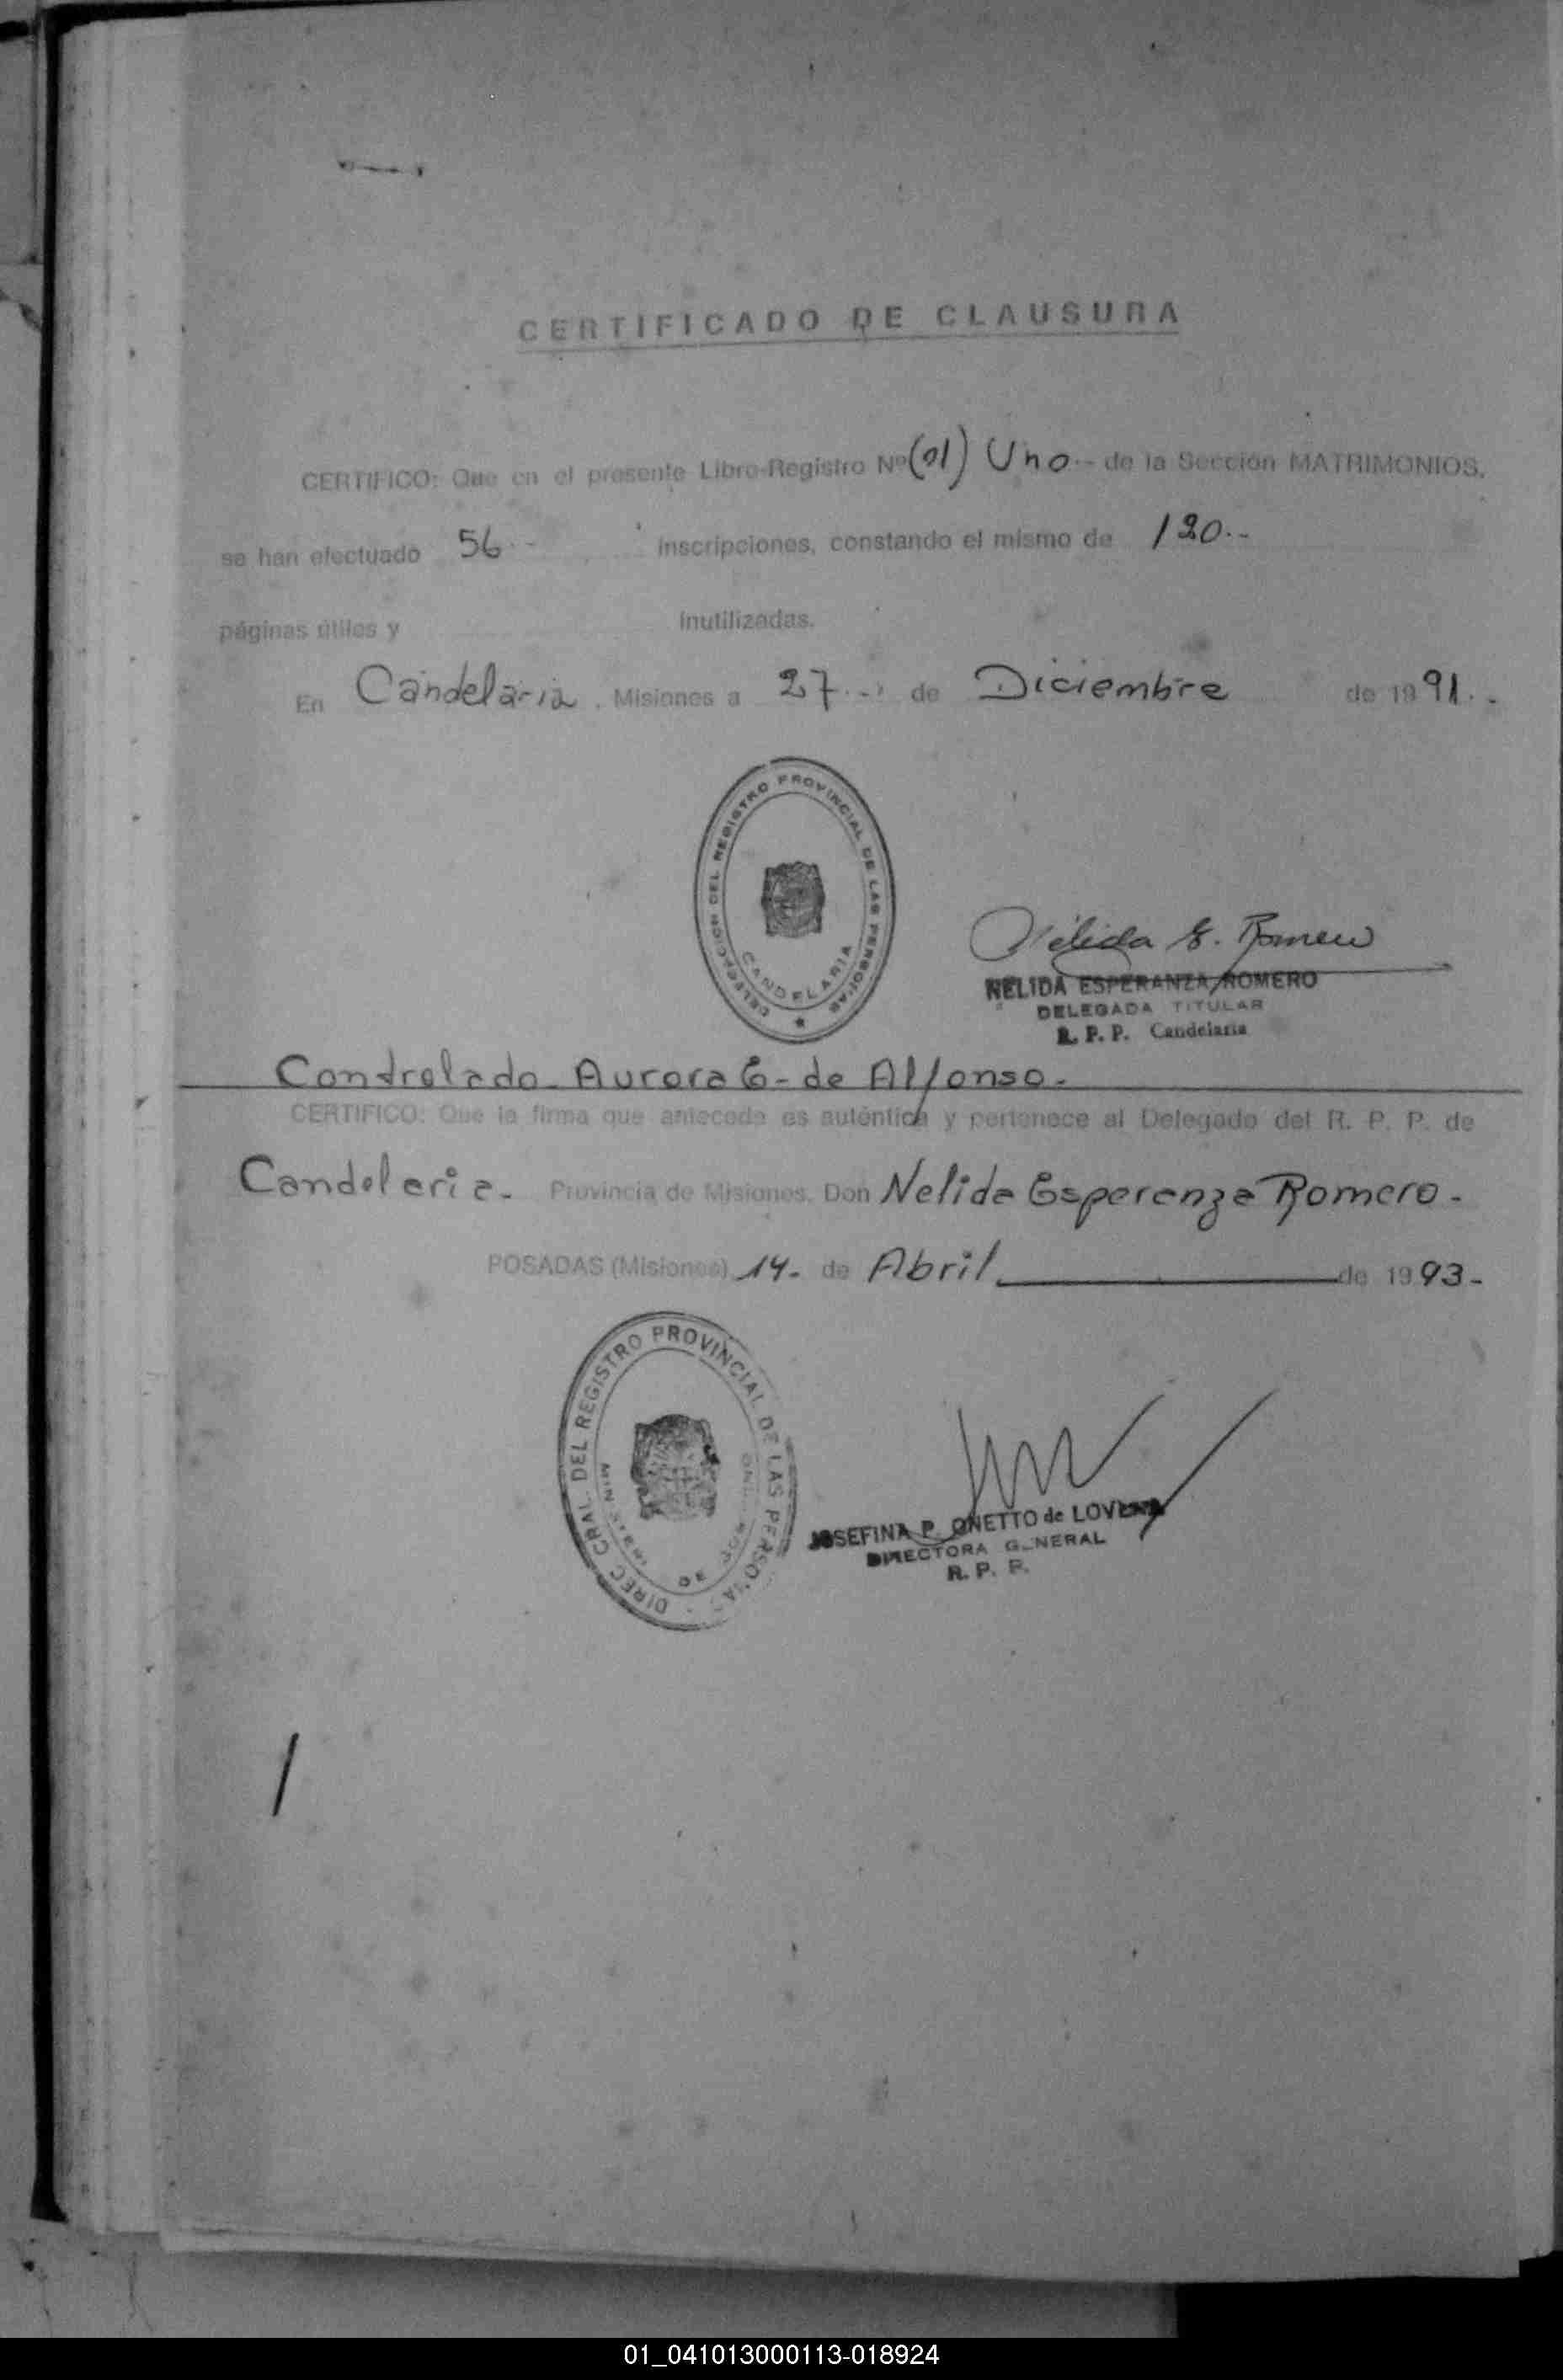 CERTIFICADO DE CLAUSURA
CERTIFICO: Que en el presente Libro-Registro Nº (01) Uno.- de la Sección MATRIMONIOS,
se han efectuado 56.- inscripciones, constando el mismo de 120.-
páginas útiles y inutilizadas.
En Candelaria, Misiones a 27.- de Diciembre de 1991.-
DELEGACION DEL REGISTRO PROVINCIAL DE LAS PERSONAS
CANDELARIA
Nélida E. Romero
NELIDA ESPERANZA ROMERO
DELEGADA TITULAR
R. P. P. Candelaria
Controlado Aurora G- de Alfonso-
CERTIFICO: Que la firma que antecede es auténtica y pertenece al Delegado del R. P. P. de
Candelaria- Provincia de Misiones, Don Nelida Esperanza Romero-
POSADAS (Misiones) 14- de Abril de 1993-
DIREC. GRAL. DEL REGISTRO PROVINCIAL DE LAS PERSONAS
DE
JOSEFINA P. ONETTO de
DIRECTORA GENERAL
R. P. P.
01_041013000113-018924